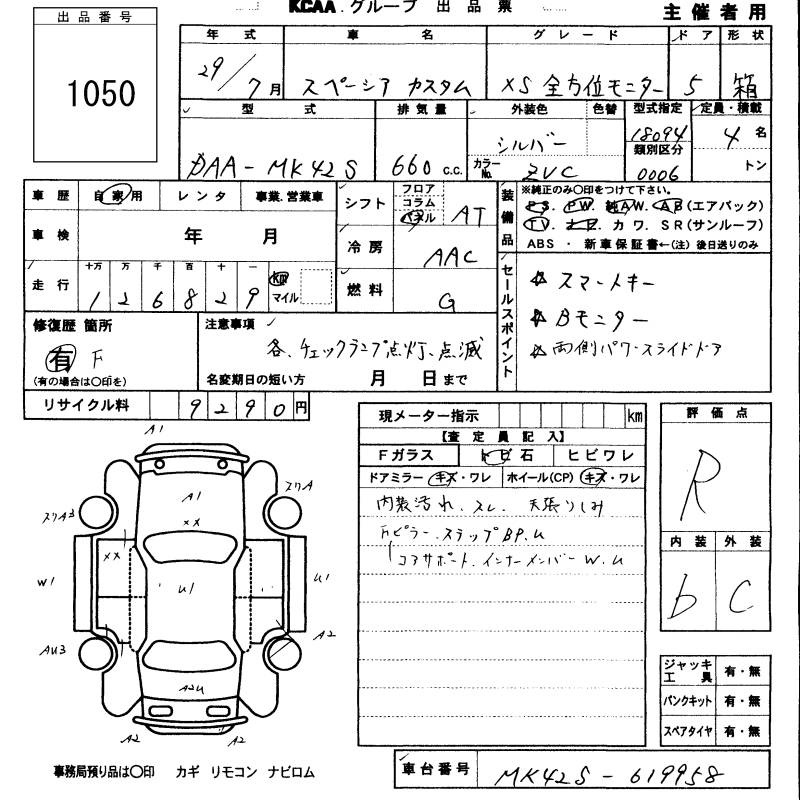 KCAA.グループ 出品票
主催者用
出品番号
1050
年式 車名 グレード ドア 形状
29/7月 スペーシア カスタム XS 全方位モニター 5 箱
型式 排気量 外装色 色替 型式指定 定員・積載
DAA-MK42S 660 c.c. シルバー 18094 4名
カラーNo. ZVC 類別区分 0006 トン
車歴 自家用 レンタ 事業.営業車
車検 年 月
走行 十万 万 千 百 十 一
1 2 6 8 2 9 km マイル
シフト フロア コラム パネル AT
冷房 AAC
燃料 G
装備品 ※純正のみ〇印をつけて下さい。
PS. PW. 純AW. AB(エアバック)
TV. ナビ. カワ. SR(サンルーフ)
ABS ・ 新車保証書←(注) 後日送りのみ
セールスポイント
☆ スマートキー
☆ Bモニター
☆ 両側パワースライドドア
修復歴 箇所
有 F
(有の場合は〇印を)
注意事項
各、チェックランプ点灯、点滅
名変期日の短い方 月 日まで
リサイクル料 9 2 9 0 円
現メーター指示 km
【査定員記入】
Fガラス トビ石 ヒビワレ
ドアミラー キズ・ワレ ホイール(CP) キズ・ワレ
内装汚れ、スレ、天張りしみ
Fピラー、ステップBP.U
コアサポート、インナーメンバーW.U
評価点
R
内装 外装
b C
ジャッキ工具 有・無
パンクキット 有・無
スペアタイヤ 有・無
A1
A1
XX
スリA
スリA3
XX
W1
U1
U1
AU3
A2
A2U
A2
A2
事務局預り品は〇印 カギ リモコン ナビロム
車台番号 MK42S-619958